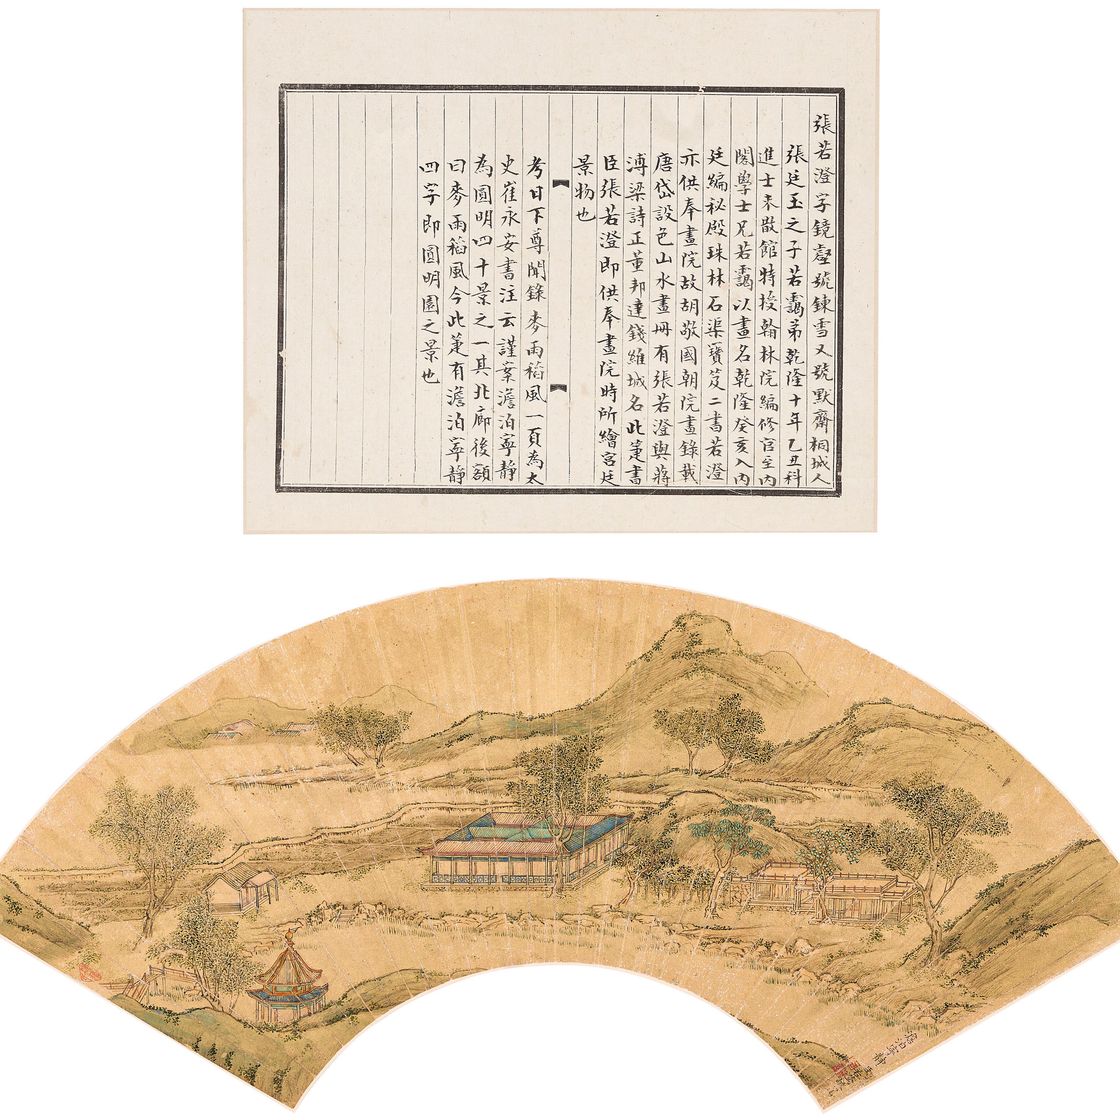 張若澄字鏡壑號鍊雪又號默齋桐城人
張廷玉之子若靄弟乾隆十年乙丑科
進士未散館特授翰林院編修官至內
閣學士兄若靄以畫名乾隆癸亥入內
廷編祕殿珠林石渠寶笈二書若澄
亦供奉畫院故胡敬國朝院畫錄載
唐岱設色山水畫冊有張若澄與蔣
溥梁詩正董邦達錢維城名此箑書
臣張若澄即供奉畫院時所繪宮廷
景物也
考日下尊聞錄麥雨稻風一頁為太
史崔永安書注云謹案澹泊寧靜
為圓明四十景之一其北廊後額
曰麥雨稻風今此箑有澹泊寧靜
四字即圓明園之景也
澹泊寧靜